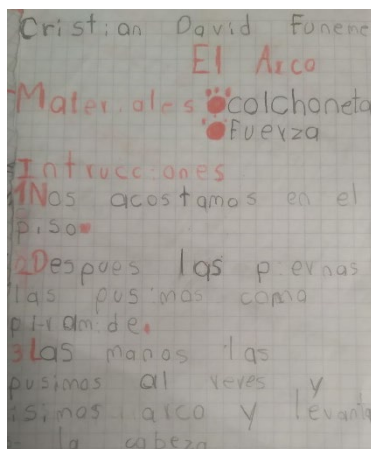 Cristian David Funeme
El Arco
Materiales colchoneta
Fuerza
Intrucciones
1Nos acostamos en el
piso.
2Despues las piernas
las pusimos como
piramide.
3Las manos las
pusimos al reves y
isimos arco y levanta
la cabeza